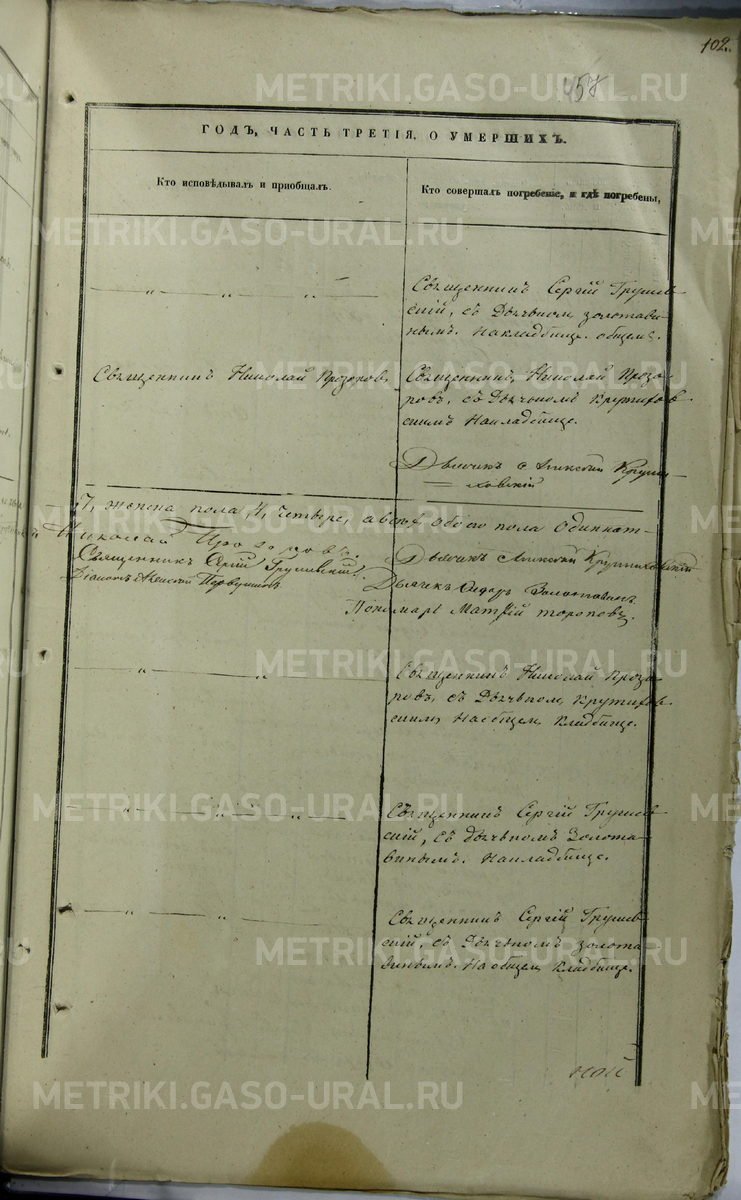 102.
457
ГОДЪ, ЧАСТЬ ТРЕТІЯ. О УМЕРШИХЪ.
Кто исповѣдывалъ и пріобщалъ.
Кто совершалъ погребеніе, и гдѣ погребены,
Священникъ Сергій Грушев-
скій, съ Дьячкомъ золотави-
нымъ. На кладбище общемъ.
Священникъ Николай Прозоровъ,
Священникъ, Николай Прозо-
ровъ, съ Дьячкомъ Крутихов-
скимъ На кладбище.
Дьячикъ Алексѣй Крути-
ховскій
7, женска пола, 4, четверо, а всего обоего пола Одиннат-
Николай Прозоровъ.
Дьячикъ Алексѣй Крутиховскій
Священникъ Сергій Грушевскій.
Діаконъ Алексѣй Первушинъ
Дьячекъ Золотавинъ.
Пономарь Матѳій тороповъ.
Священникъ Николай Прозо-
ровъ, съ Дьячкомъ, Крутихов-
скимъ, На общемъ Кладбище.
Священникъ Сергій Грушев-
скій, съ дьячкомъ Золота-
винымъ. На кладбище.
Священникъ Сергій Грушев-
скій, съ Дьячкомъ золота-
винымъ. На общемъ Кладбище.
METRIKI.GASO-URAL.RU